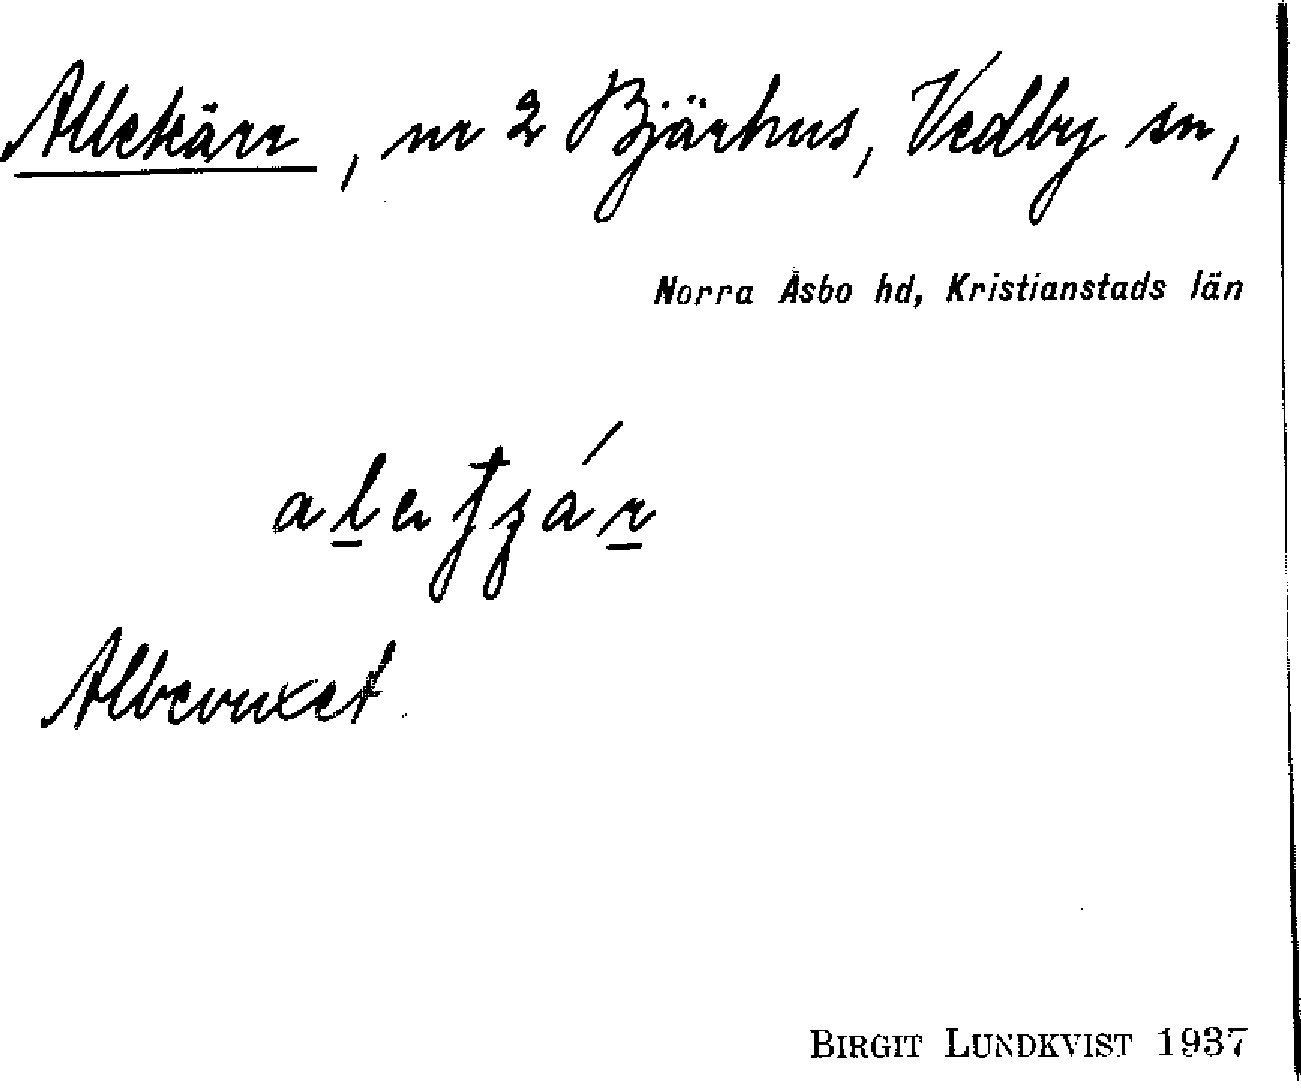 Allekärr, nr 2 Bjärhus, Vedby sn,
Norra Åsbo hd, Kristianstads län
Albevuxet.
BIRGIT LUNDKVIST 1937